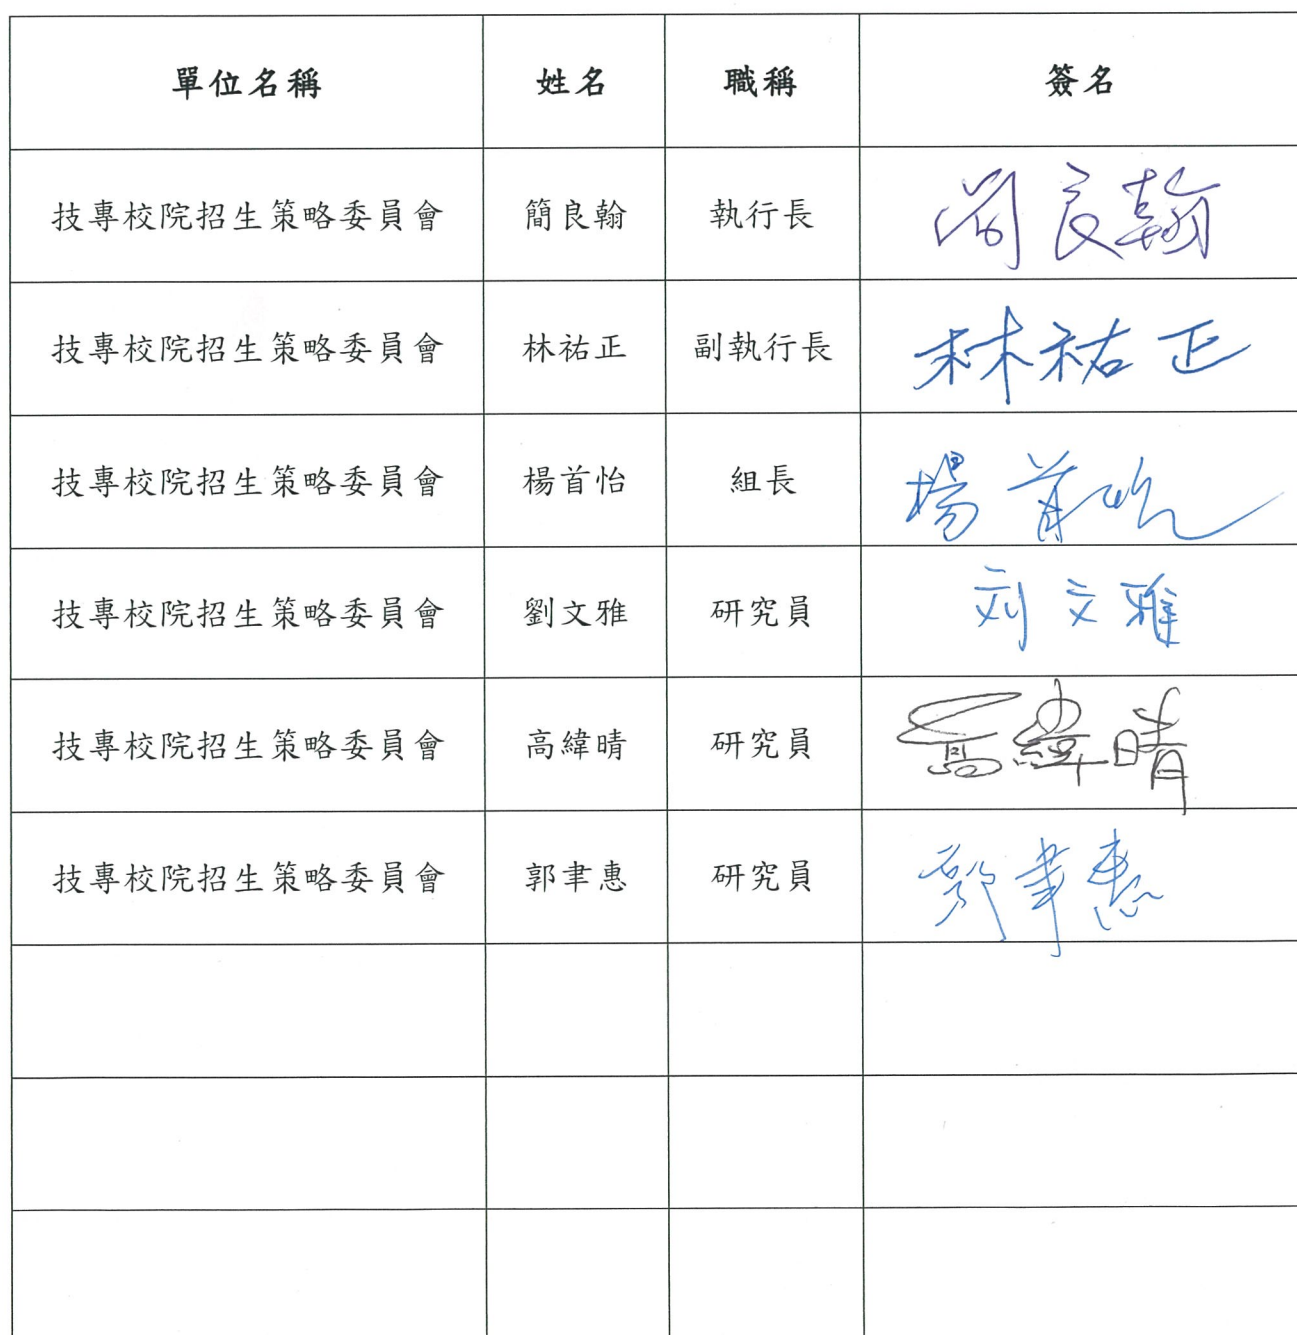 單位名稱 姓名 職稱 簽名
技專校院招生策略委員會 簡良翰 執行長 簡良翰
技專校院招生策略委員會 林祐正 副執行長 林祐正
技專校院招生策略委員會 楊首怡 組長 楊首怡
技專校院招生策略委員會 劉文雅 研究員 刘文雅
技專校院招生策略委員會 高緯晴 研究員 高緯晴
技專校院招生策略委員會 郭聿惠 研究員 郭聿惠